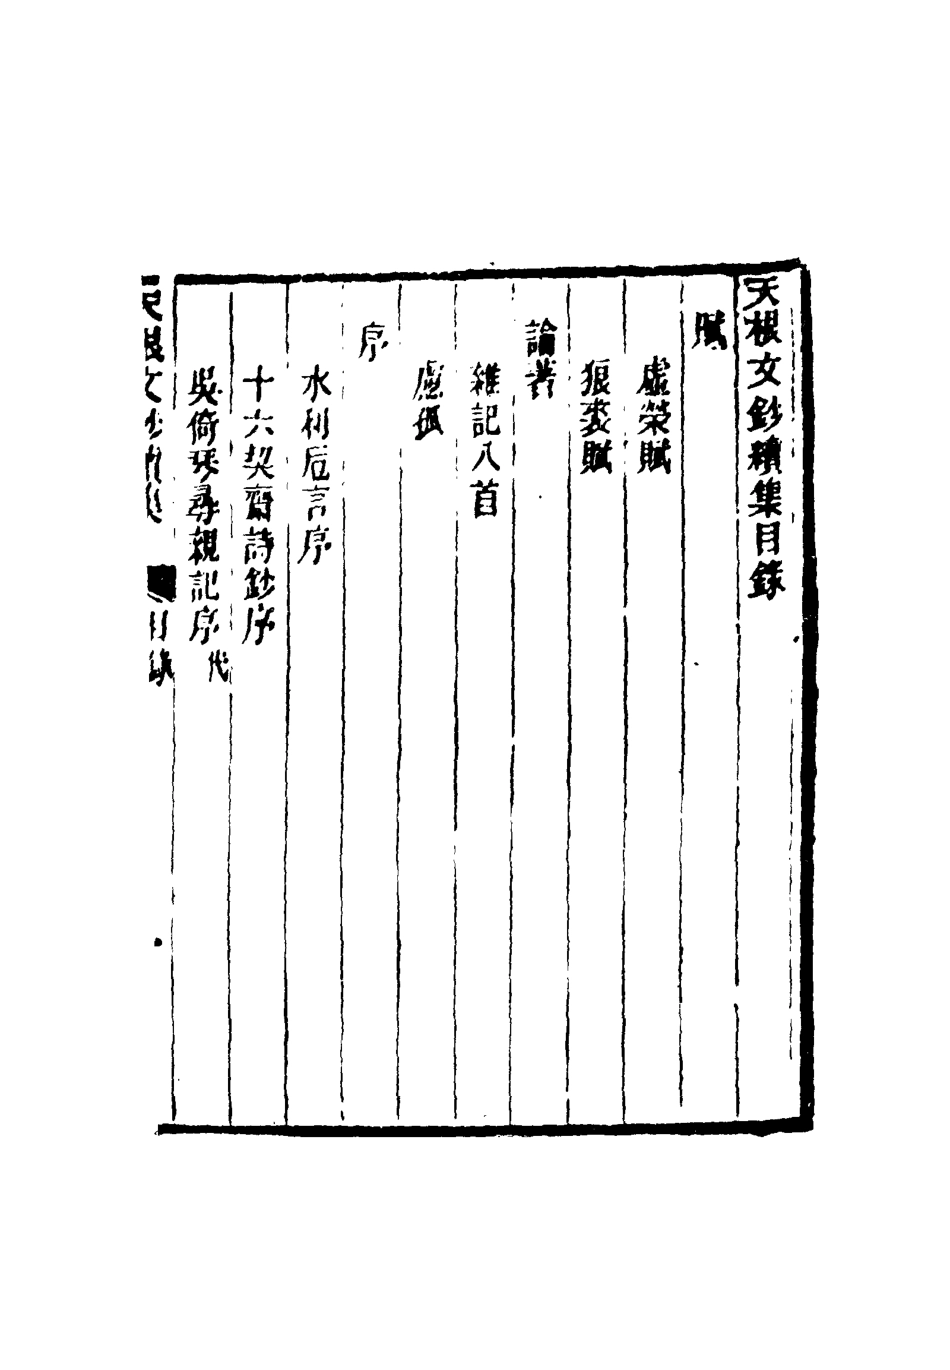 天根文鈔續集目錄
賦
虛榮賦
狠麥賦
論著
雜記八首
慮孤
序
水利卮言序
十六契齋詩鈔序
吳倚琴尋親記序代
天根文鈔續集 目錄